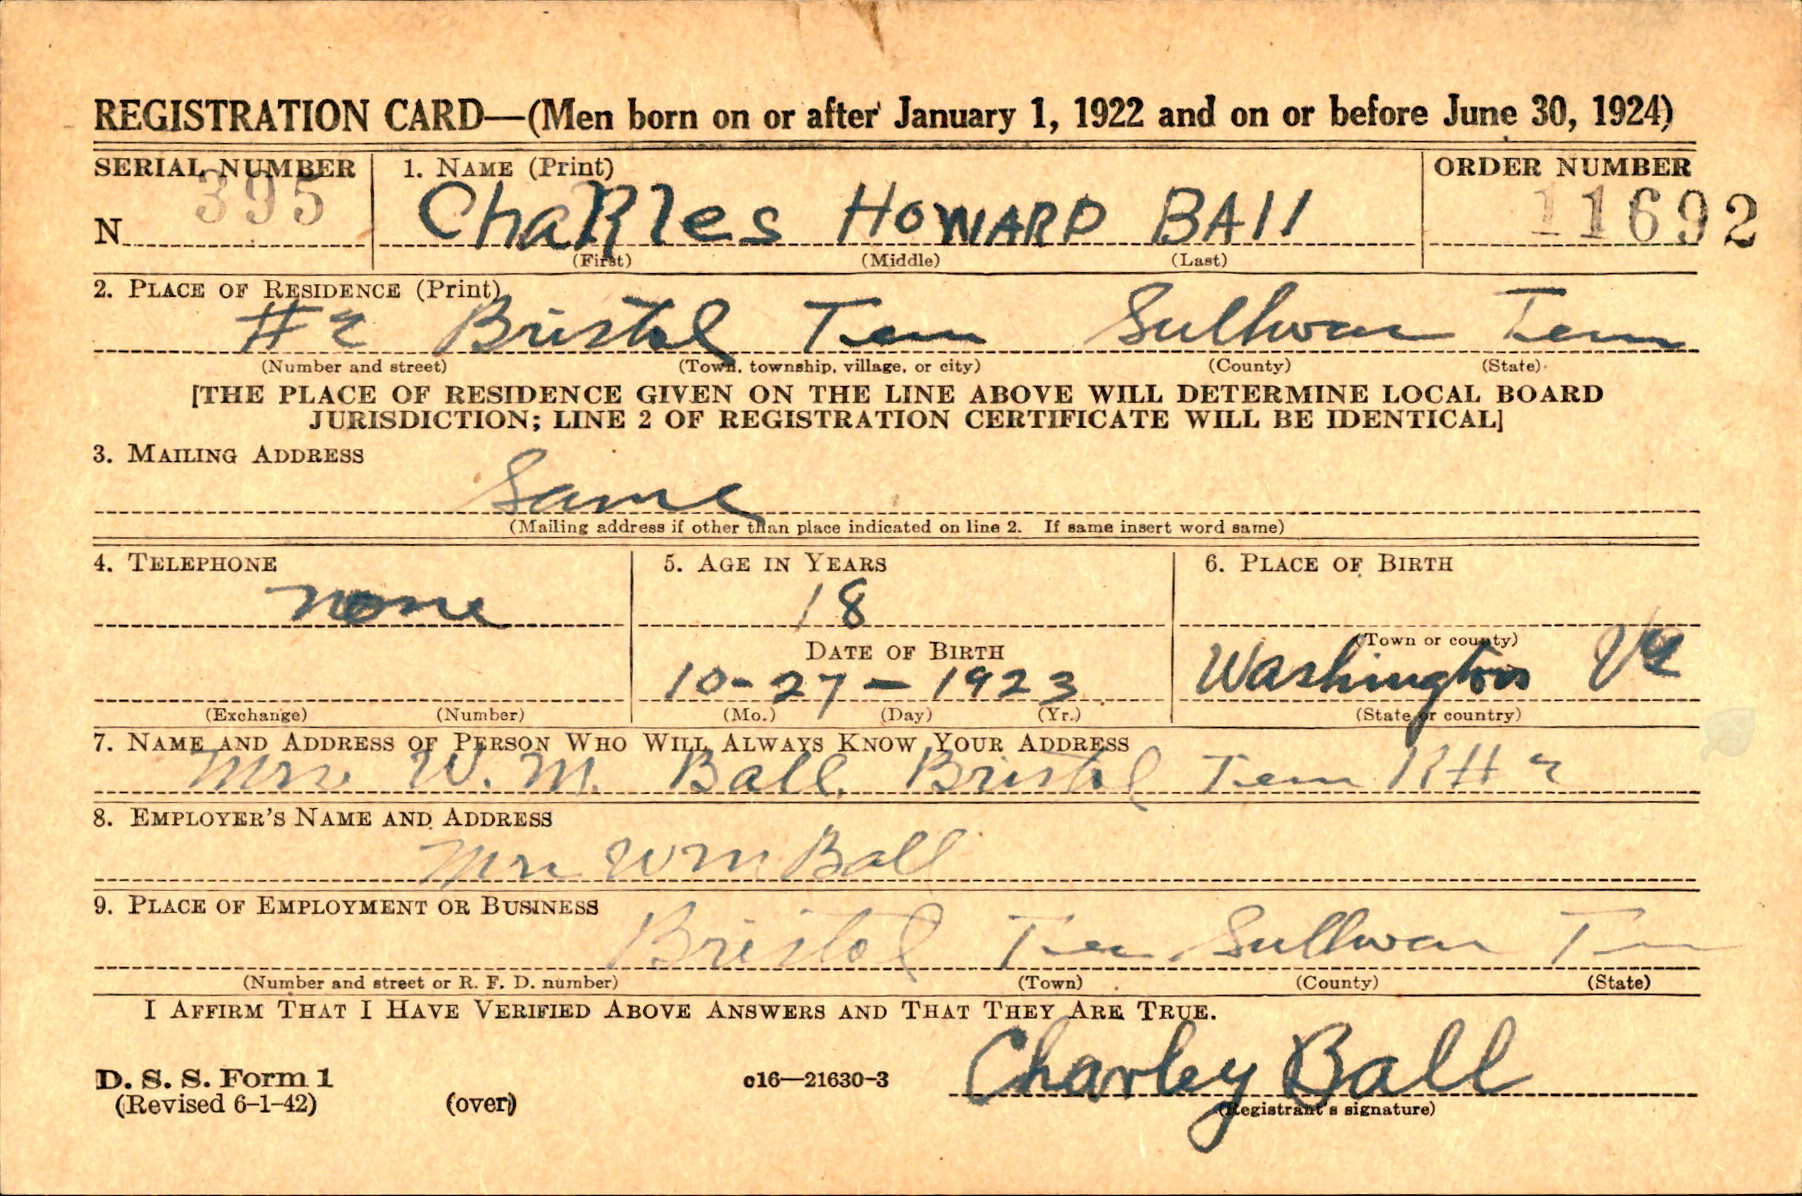 REGISTRATION CARD—(Men born on or after January 1, 1922 and on or before June 30, 1924)
SERIAL NUMBER 1. NAME (Print) ORDER NUMBER
N 395 Charles HOWARD BAll 11692
(First) (Middle) (Last)
2. PLACE OF RESIDENCE (Print)
#2 Bristol Tenn Sullivan Tenn
(Number and street) (Town, township, village, or city) (County) (State)
[THE PLACE OF RESIDENCE GIVEN ON THE LINE ABOVE WILL DETERMINE LOCAL BOARD
JURISDICTION; LINE 2 OF REGISTRATION CERTIFICATE WILL BE IDENTICAL]
3. MAILING ADDRESS
Same
(Mailing address if other than place indicated on line 2. If same insert word same)
4. TELEPHONE 5. AGE IN YEARS 6. PLACE OF BIRTH
none 18
DATE OF BIRTH (Town or county)
10-27-1923 Washington Va
(Exchange) (Number) (Mo.) (Day) (Yr.) (State or country)
7. NAME AND ADDRESS OF PERSON WHO WILL ALWAYS KNOW YOUR ADDRESS
Mrs. W. M. Ball. Bristol Tenn R#2
8. EMPLOYER'S NAME AND ADDRESS
Mrs W M Ball
9. PLACE OF EMPLOYMENT OR BUSINESS
Bristol Ten Sullivan Tenn
(Number and street or R. F. D. number) (Town) (County) (State)
I AFFIRM THAT I HAVE VERIFIED ABOVE ANSWERS AND THAT THEY ARE TRUE.
Charley Ball
D. S. S. Form 1 c16—21630-3
(Revised 6-1-42) (over) (Registrant's signature)